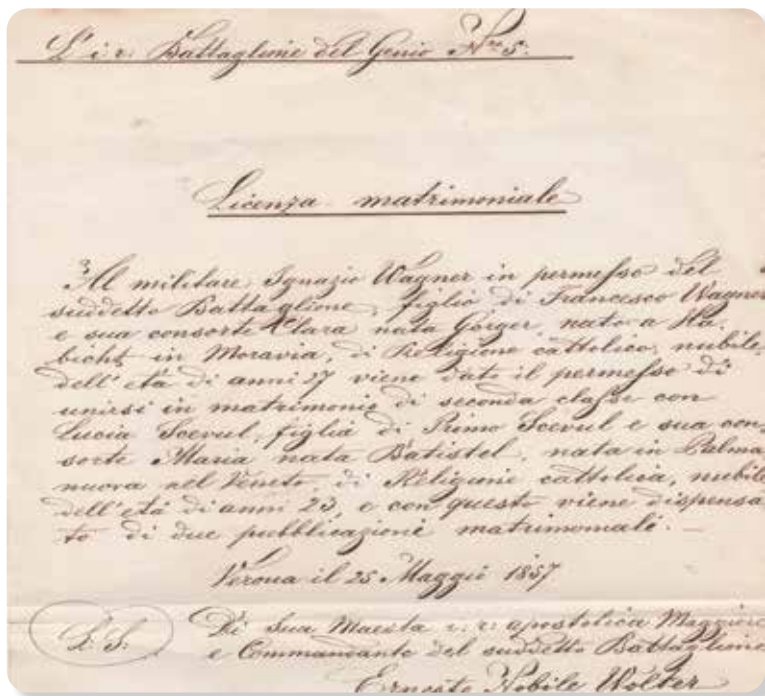 L' i. r. Battaglione del Genio Nro 5.
Licenza matrimoniale
Al militare Ignazio Wagner in permesso del
suddetto Battaglione, figlio di Francesco Wagner
e sua consorte Clara nata Görger, nato a Ha-
bicht in Moravia, di Religione cattolica, nubile,
dell' età di anni 27 viene dato il permesso di
unirsi in matrimonio di seconda classe con
Lucia Scevul, figlia di Primo Scevul e sua con-
sorte Maria nata Batistel, nata in Palma
nuova nel Veneto, di Religione cattolica, nubile
dell' età di anni 23, e con questo viene dispensa
to di due pubblicazioni matrimoniali. —
Verona il 25 Maggio 1857
L. S. Di Sua Maestà i. r. apostolica Maggiore
e Commandante del suddetto Battaglione
Ernesto Nobile Wolter